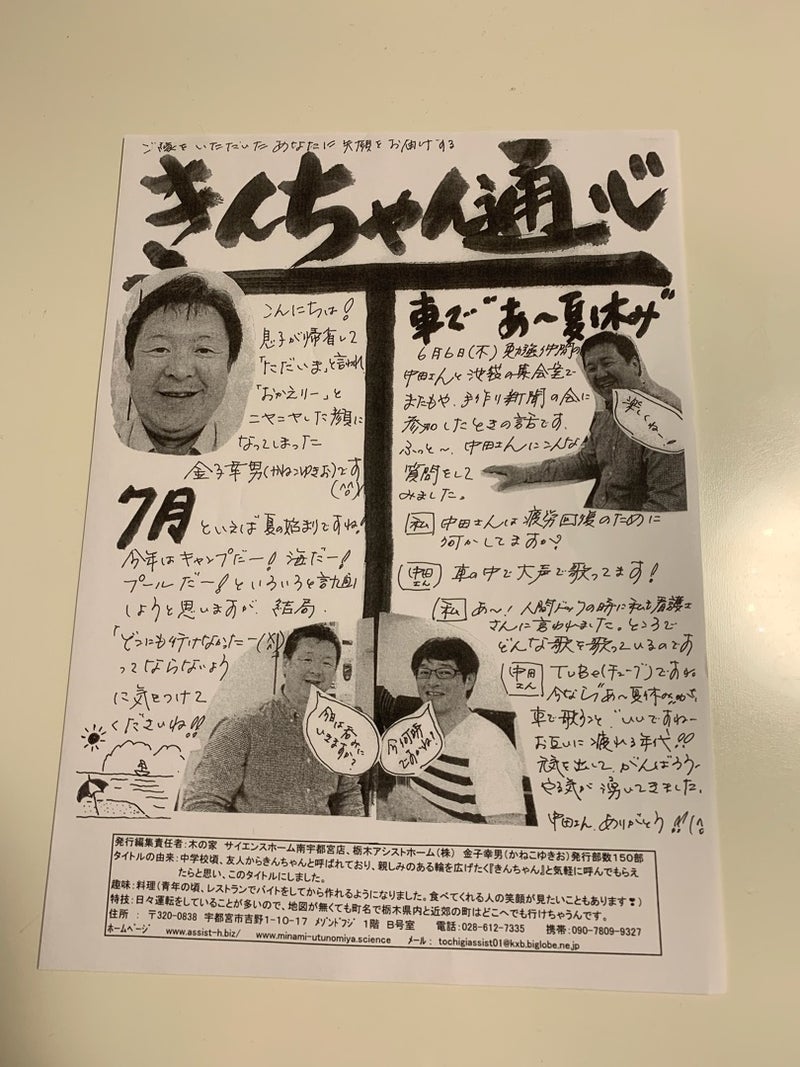 ご縁をいただいたあなたに笑顔をお届けする
きんちゃん通心
こんにちは!
息子が帰省して
「ただいま」と言われ
「おかえりー」と
ニヤニヤした顔に
なってしまった
金子幸男(かねこゆきお)です
(^o^)
7月といえば夏の始まりですね!
今年はキャンプだー!海だー!
プールだー!といろいろと計画
しようと思いますが、結局、
「どこにも行けなかったー
ってならないよう
に気をつけて
くださいね!!
今日は呑みに
いきますか?
車で"あ〜夏休み"
6月6日(木)勉強仲間の
中田さんと池袋の集会室で
またもや、手作り新聞の会に
参加したときの話です。
ふっと〜、中田さんにこんな
質問をして
みました。
楽しくね〜!!
私 中田さんは疲労回復のために
何かしてますか?
中田さん 車の中で大声で歌ってます!
私 あ〜!人間ドックの時に私も看護士
さんに言われました。ところで
どんな歌を歌っているのです
中田さん TUBE(チューブ)ですね
今なら「あ〜夏休み」かな。
車で歌うと"いいですねー
お互いに疲れる年代!!
元気を出して、がんばろう〜
やる気が湧いてきました。
中田さん、ありがとう!!
今何時
ですかね!
発行編集責任者:木の家 サイエンスホーム南宇都宮店、栃木アシストホーム(株) 金子幸男(かねこゆきお)発行部数150部
タイトルの由来:中学校頃、友人からきんちゃんと呼ばれており、親しみのある輪を広げたく『きんちゃん』と気軽に呼んでもらえ
たらと思い、このタイトルにしました。
趣味:料理(青年の頃、レストランでバイトをしてから作れるようになりました。食べてくれる人の笑顔が見たいこともあります❢)
特技:日々運転をしていることが多いので、地図が無くても町名で栃木県内と近郊の町はどこへでも行けちゃうんです。
住所 : 〒320-0838 宇都宮市吉野1-10-17 メゾンドフジ 1階 B号室 電話:028-612-7335 携帯:090-7809-9327
ホームページ www.assist-h.biz/ www.minami-utunomiya.science メール: tochigiassist01@kxb.biglobe.ne.jp